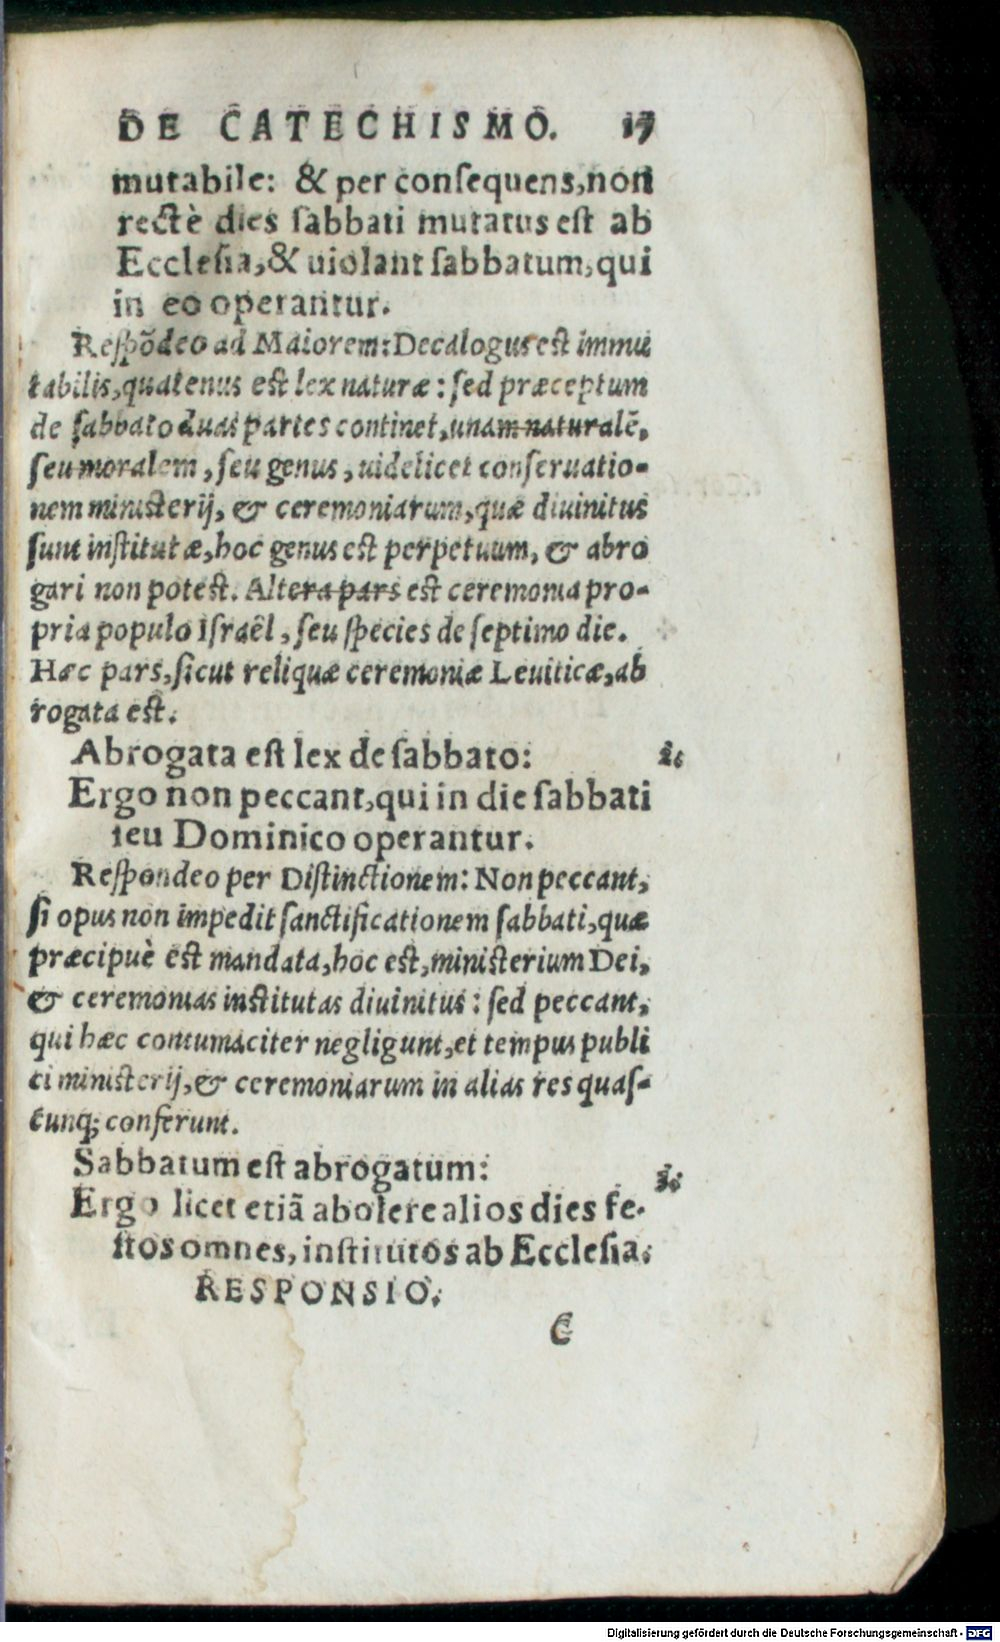 DE CATECHISMO. 17
mutabile: & per conſequens, non
rectè dies ſabbati mutatus eſt ab
Eccleſia, & uiolant ſabbatum, qui
in eo operantur.
Reſpõdeo ad Maiorem: Decalogus eſt immu
tabilis, quatenus eſt lex naturæ: ſed præceptum
de ſabbato duas partes continet, unam naturalẽ,
ſeu moralem, ſeu genus, uidelicet conſeruatio-
nem miniſterij, & ceremoniarum, quæ diuinitus
ſunt inſtitutæ, hoc genus eſt perpetuum, & abro
gari non poteſt. Altera pars eſt ceremonia pro-
pria populo Iſraël, ſeu ſpecies de ſeptimo die.
Hæc pars, ſicut reliquæ ceremoniæ Leuiticæ, ab
rogata eſt.
Abrogata eſt lex de ſabbato: 2.
Ergo non peccant, qui in die ſabbati
ſeu Dominico operantur.
Reſpondeo per Diſtinctionem: Non peccant,
ſi opus non impedit ſanctificationem ſabbati, quæ
præcipuè eſt mandata, hoc eſt, miniſterium Dei,
& ceremonias inſtitutas diuinitus: ſed peccant,
qui hæc contumaciter negligunt, et tempus publi
ci miniſterij, & ceremoniarum in alias res quaſ-
cunq; conferunt.
Sabbatum eſt abrogatum: 3.
Ergo licet etiã abolere alios dies fe-
ſtos omnes, inſtitutos ab Eccleſia.
RESPONSIO.
C
Digitalisierung gefördert durch die Deutsche Forschungsgemeinschaft - DFG